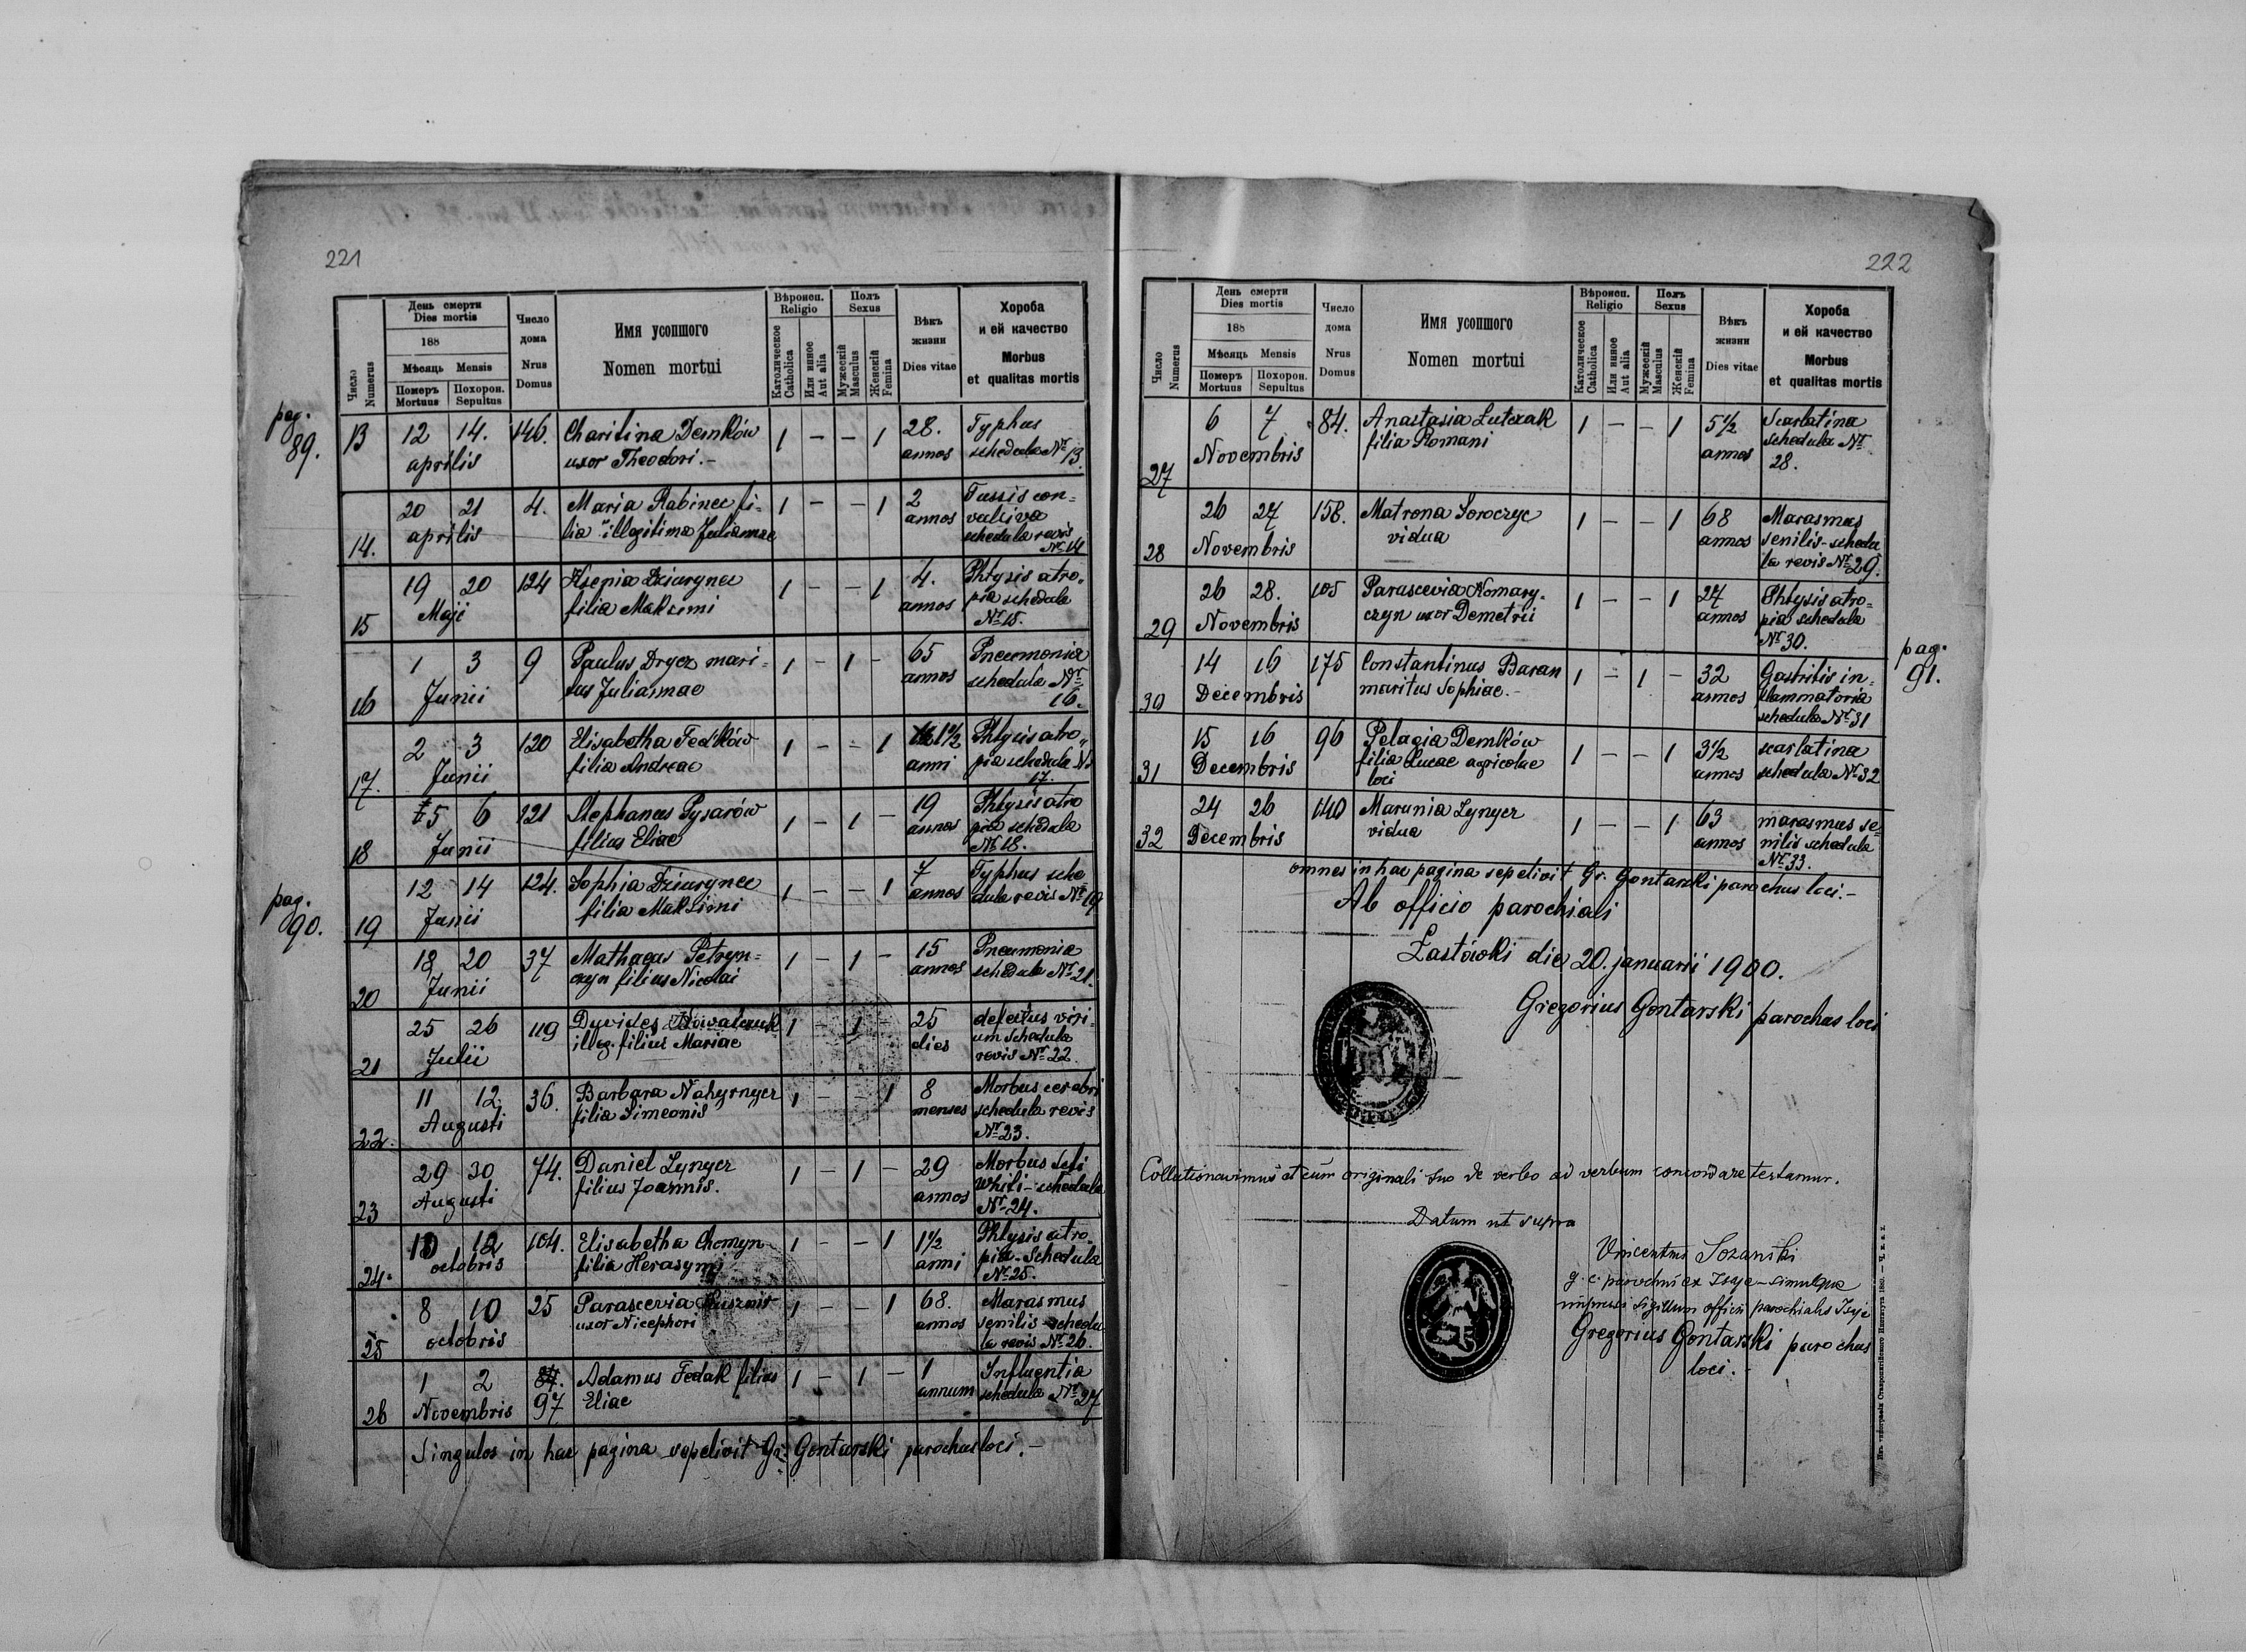 221
День смерти
Dies mortis
188
Мѣсяць Mensis
Померъ
Mortuus
Похорон.
Sepultus
Число
Numerus
Число
дома
Nrus
Domus
Имя усопшого
Nomen mortui
Вѣроисп.
Religio
Католическое
Catholica
Или инное
Aut alia
Полъ
Sexus
Мужескій
Masculus
Женскій
Femina
Вѣкъ
жизни
Dies vitae
Хороба
и ей качество
Morbus
et qualitas mortis
pag.
89.
13 12 14. 146. Charitina Demków 1 – – 1 28. Typhus
aprilis uxor Theodori.– annos schedula Nr 13.
14. 20 21 4. Maria Rabinec fi= 1 – – 1 2 Tussis con=
aprilis lia illegitima Juliannae annos vulsiva
schedula revis
Nr 14
15 19 20 124 Ksenia Dziurynec 1 – – 1 4. Phtysis atro=
Maji filia Maksimi annos pia schedula
Nr 15.
16 1 3 9 Paulus Drycz mari= 1 – 1 – 65 Pneumonia
Junii tus Juliannae annos schedula Nr
16.
17. 2 3 120 Elisabetha Fedków 1 – – 1 1 1/2 Phtysis atro=
Junii filia Andreae anni pia schedula Nr
17.
18 5 6 121 Stephanus Pysarów 1 – 1 – 19 Phtysis atro
Junii filius Eliae annos pia schedula
Nr 18.
pag.
90.
19 12 14 124. Sophia Dziurynec 1 – – 1 7 Typhus sche
Junii filia Maksimi annos dula revis Nr 19
20 18 20 37 Mathaeus Petryn= 1 – 1 – 15 Pneumonia
Junii czyn filius Nicolai annos schedula Nr 21.
21 25 26 119 Dyvides Kowalczuk 1 – 1 – 25 defectus viri=
Julii illeg. filius Mariae dies um schedula
revis Nr 22.
22. 11 12 36. Barbara Nahyrnyer 1 – – 1 8 Morbus cerebri
Augusti filia Simeonis menses schedula revis
Nr 23.
23 29 30 74. Daniel Lynycz 1 – 1 – 29 Morbus
Augusti filius Joannis. annos schedula
Nr 24.
24. 10 12 104. Elisabetha Chomyn 1 – – 1 1 1/2 Phtysis atro=
octobris filia Herasymi anni pia – schedula
Nr 25.
25 8 10 25 Parascevia 1 – – 1 68. Marasmus
octobris uxor Nicephori annos senilis schedu
la revis Nr 26.
26 1 2 84. Adamus Fedak filius 1 – 1 – 1 Influentia
Novembris 97 Eliae annum schedula Nr 27
Singulos in hac pagina sepelivit Gr. Gontarski parochus loci.–
222
День смерти
Dies mortis
188
Мѣсяць Mensis
Померъ
Mortuus
Похорон.
Sepultus
Число
Numerus
Число
дома
Nrus
Domus
Имя усопшого
Nomen mortui
Вѣроисп.
Religio
Католическое
Catholica
Или инное
Aut alia
Полъ
Sexus
Мужескій
Masculus
Женскій
Femina
Вѣкъ
жизни
Dies vitae
Хороба
и ей качество
Morbus
et qualitas mortis
27 6 7 84. Anastasia Lutczak 1 – – 1 5 1/2 Scarlatina
Novembris filia Romani annos schedula Nr
28.
28 26 27 158. Matrona Soroczyc 1 – – 1 68 Marasmus
Novembris vidua annos senilis – schedu
la revis Nr 29.
29 26 28. 105 Parascevia Komary= 1 – – 1 27 Phtysis atro=
Novembris czyn uxor Demetrii annos pia schedula
Nr 30.
pag.
91.
30 14 16 175 Constantinus Baran 1 – 1 – 32 Gastritis in=
Decembris maritus Sophiae.– annos flammatoria
schedula Nr 31
31 15 16 96 Pelagia Demków 1 – – 1 3 1/2 scarlatina
Decembris filia Lucae agricolae annos schedula Nr 32
loci
32 24 26 140 Marunia Lynycz 1 – – 1 63 marasmus se=
Decembris vidua annos nilis schedula
Nr 33.
omnes in hac pagina sepelivit Gr. Gontarski parochus loci.–
Ab officio parochiali
Zastáwki die 20. januarii 1900.
Gregorius Gontarski parochus loci
Collationavimus et cum originali suo de verbo ad verbum concordare testamur.
Datum ut supra
Vincentius Sozański
g. c. parochus ex Isaje – simulque
impressi sigillum officii parochialis Isaje
Gregorius Gontarski parochus
loci.–
Изъ типографіи Ставропигійского Института 1880. — Ч. в. з. г.